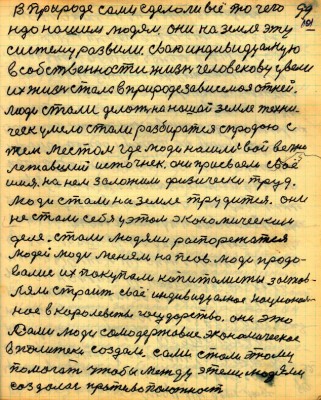 99
101
В природе сами сделали всё то чего
надо нашим людям. они на земле эту
систему развили. свою индивидуалную
в собственности жизн человекову ввели
их жизн стала в природе зависемоя от ней.
люди стали делат на нашой земле техни
ческ умело стали разбиратся с природою с
тем местом где люди нашли свой
источнек. они присваем своё
имя. на нем заложили физически труд.
люди стали на земле трудится. они
не стали себя у этом экономическим
деле. стали людями распорежатся
людей люди меняли на псов. люди продо
вали их покупали копиталисты застов-
ляли строит своё индивидуалное национал-
ное в королевсть государство. они это
сами люди самодержавие экономическое
в политеки создали. сами стали этому
помогат чтобы между этеми людями
создалас противоположност